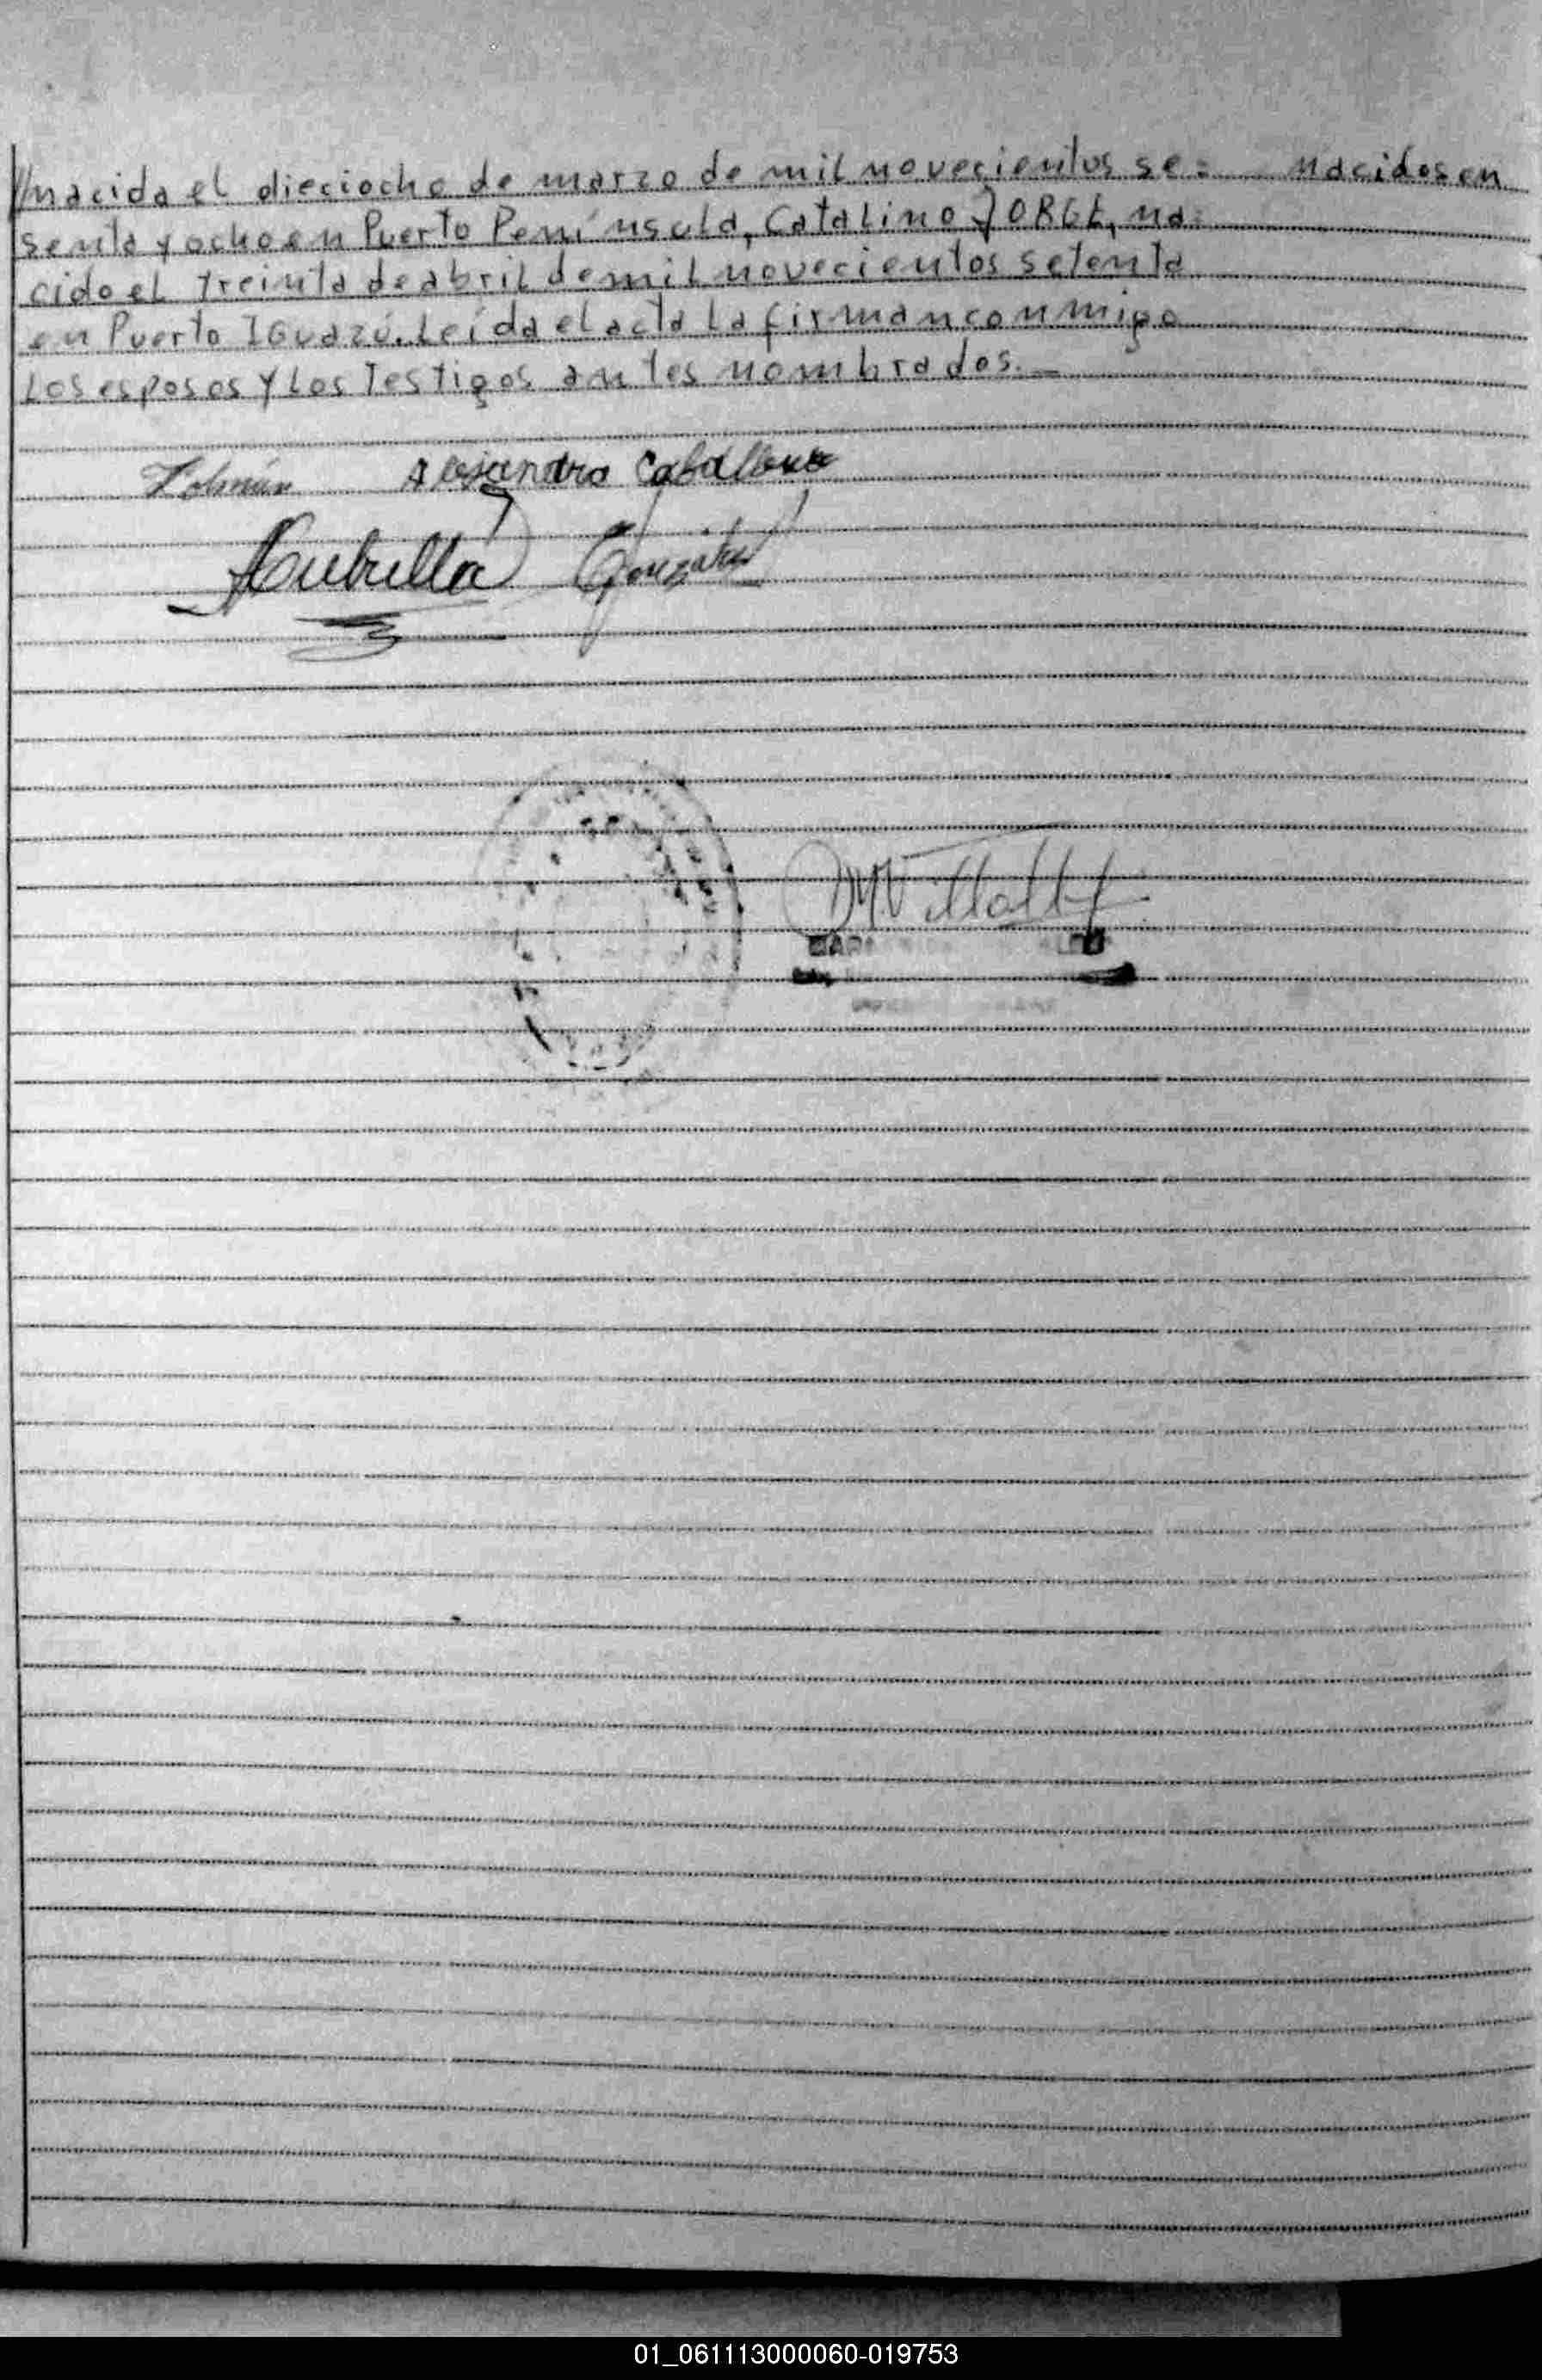 nacida el dieciocho de marzo de mil novecientos se= nacidos en
senta y ocho en Puerto Península, Catalino JORGE, na=
cido el treinta de abril de mil novecientos setenta
en Puerto Iguazú. Leída el acta la firman conmigo
los esposos y los testigos antes nombrados.—
Alejandra Caballero
González
01_061113000060-019753